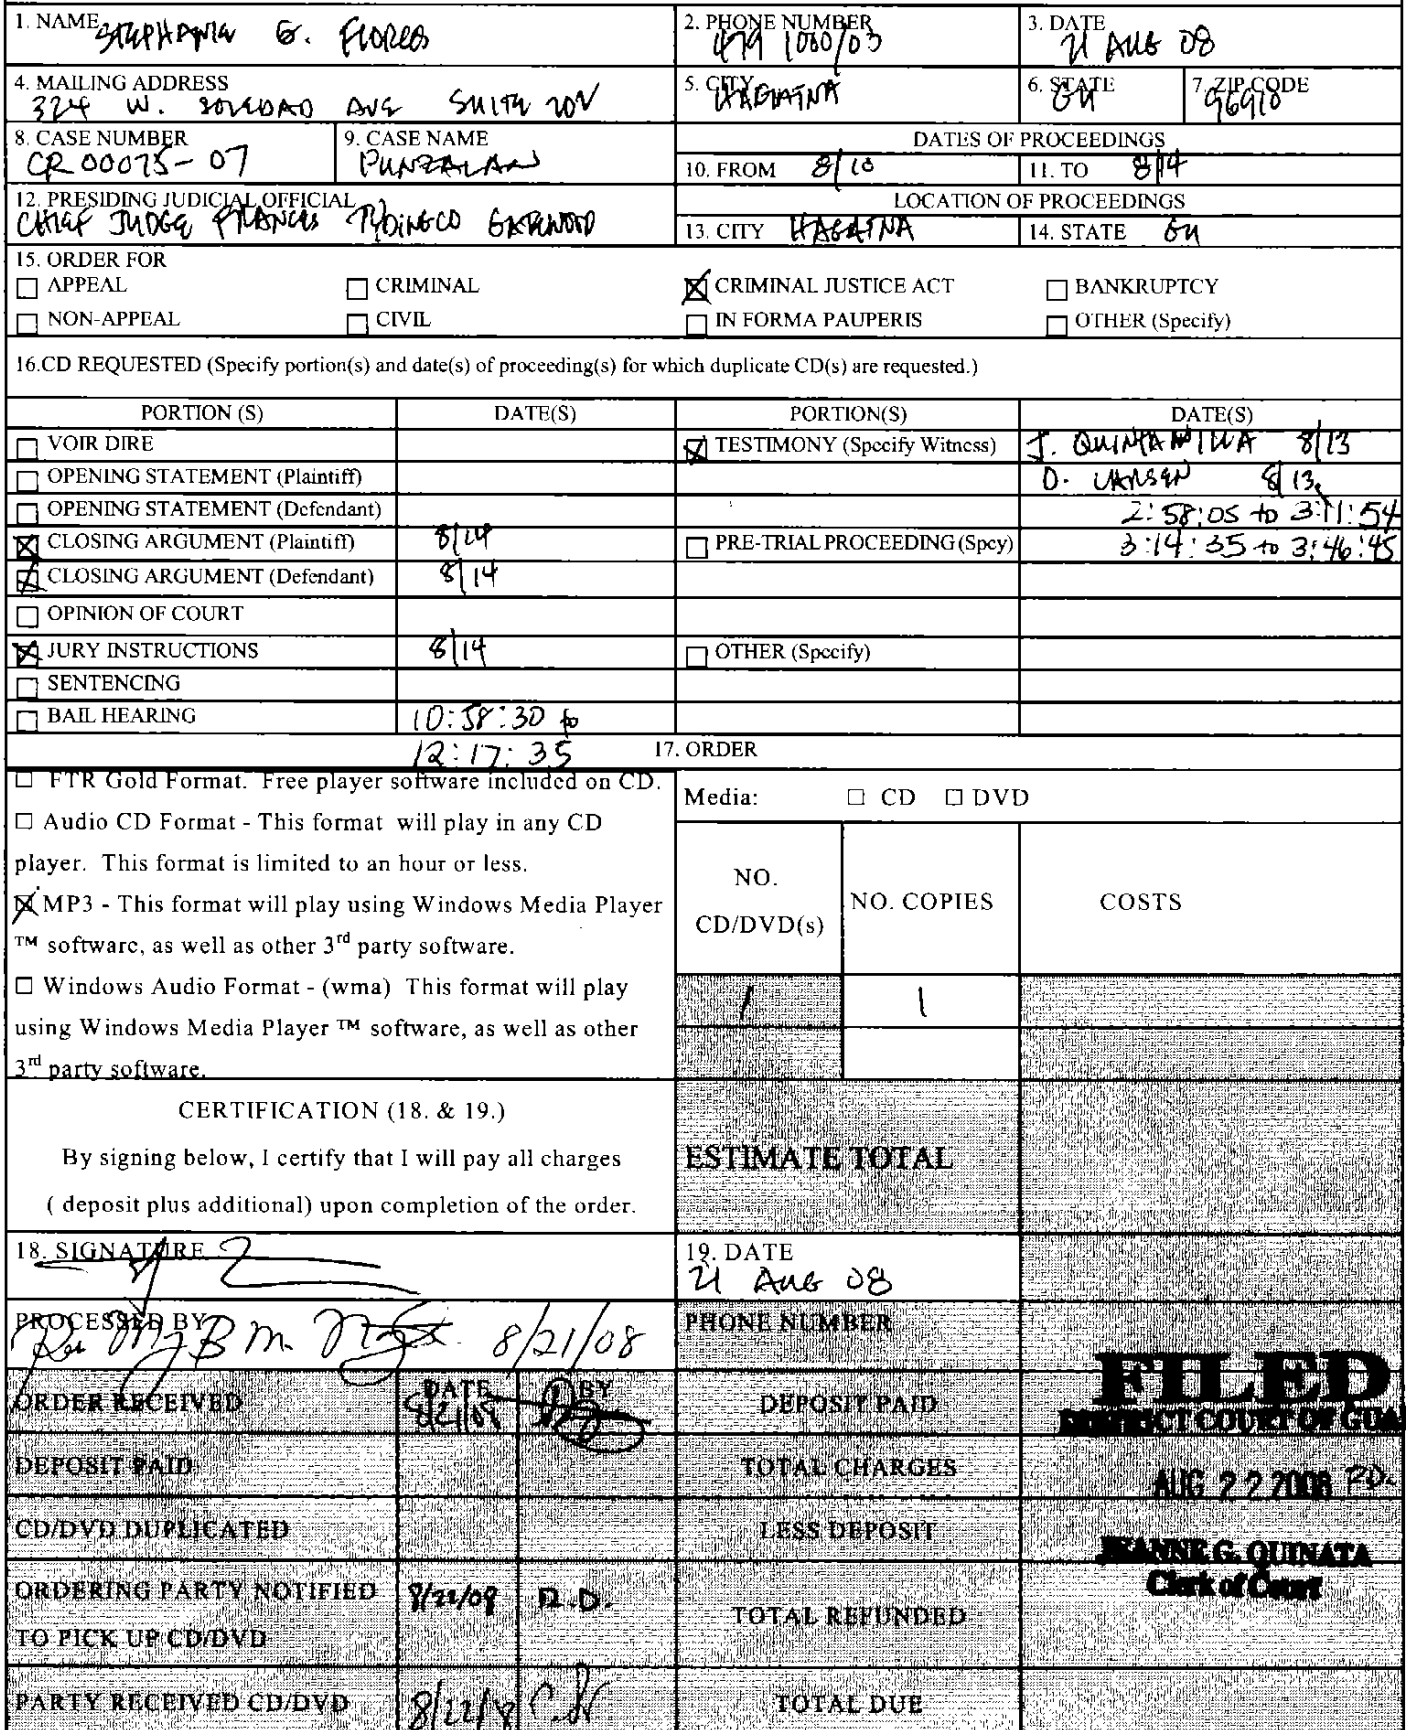 1. NAME STEPHANIE G. FLORES
2. PHONE NUMBER 479 1000/03
3. DATE 21 AUG 08
4. MAILING ADDRESS
324 W. SOLEDAD AVE SUITE 202
5. CITY HAGATNA
6. STATE GU
7. ZIP CODE 96910
8. CASE NUMBER
CR 00075-07
9. CASE NAME
PUNZALAN
DATES OF PROCEEDINGS
10. FROM 8/10
11. TO 8/14
12. PRESIDING JUDICIAL OFFICIAL
CHIEF JUDGE FRANCES TYDINGCO GATEWOOD
LOCATION OF PROCEEDINGS
13. CITY HAGATNA
14. STATE GU
15. ORDER FOR
APPEAL
CRIMINAL
CRIMINAL JUSTICE ACT
BANKRUPTCY
NON-APPEAL
CIVIL
IN FORMA PAUPERIS
OTHER (Specify)
16.CD REQUESTED (Specify portion(s) and date(s) of proceeding(s) for which duplicate CD(s) are requested.)
PORTION (S) DATE(S) PORTION(S) DATE(S)
VOIR DIRE
TESTIMONY (Specify Witness) J. QUINTANILLA 8/13
OPENING STATEMENT (Plaintiff)
D. LARSEN 8/13
OPENING STATEMENT (Defendant)
2:58:05 to 3:11:54
CLOSING ARGUMENT (Plaintiff) 8/14
PRE-TRIAL PROCEEDING (Spcy) 3:14:35 to 3:46:45
CLOSING ARGUMENT (Defendant) 8/14
OPINION OF COURT
JURY INSTRUCTIONS 8/14
OTHER (Specify)
SENTENCING
BAIL HEARING 10:58:30 to
12:17:35
17. ORDER
FTR Gold Format. Free player software included on CD.
Audio CD Format - This format will play in any CD
player. This format is limited to an hour or less.
MP3 - This format will play using Windows Media Player
™ software, as well as other 3rd party software.
Windows Audio Format - (wma) This format will play
using Windows Media Player ™ software, as well as other
3rd party software.
Media: CD DVD
NO.
CD/DVD(s)
NO. COPIES
COSTS
1 1
CERTIFICATION (18. & 19.)
By signing below, I certify that I will pay all charges
( deposit plus additional) upon completion of the order.
ESTIMATE TOTAL
18. SIGNATURE
19. DATE
21 AUG 08
PROCESSED BY
8/21/08
PHONE NUMBER
FILED
DISTRICT COURT OF GUA
AUG 22 2008
JEANNE G. QUINATA
Clerk of Court
DATE BY
ORDER RECEIVED 8/21/08
DEPOSIT PAID
DEPOSIT PAID
TOTAL CHARGES
CD/DVD DUPLICATED
LESS DEPOSIT
ORDERING PARTY NOTIFIED
TO PICK UP CD/DVD
8/22/08 R.D.
TOTAL REFUNDED
PARTY RECEIVED CD/DVD 8/22/08
TOTAL DUE